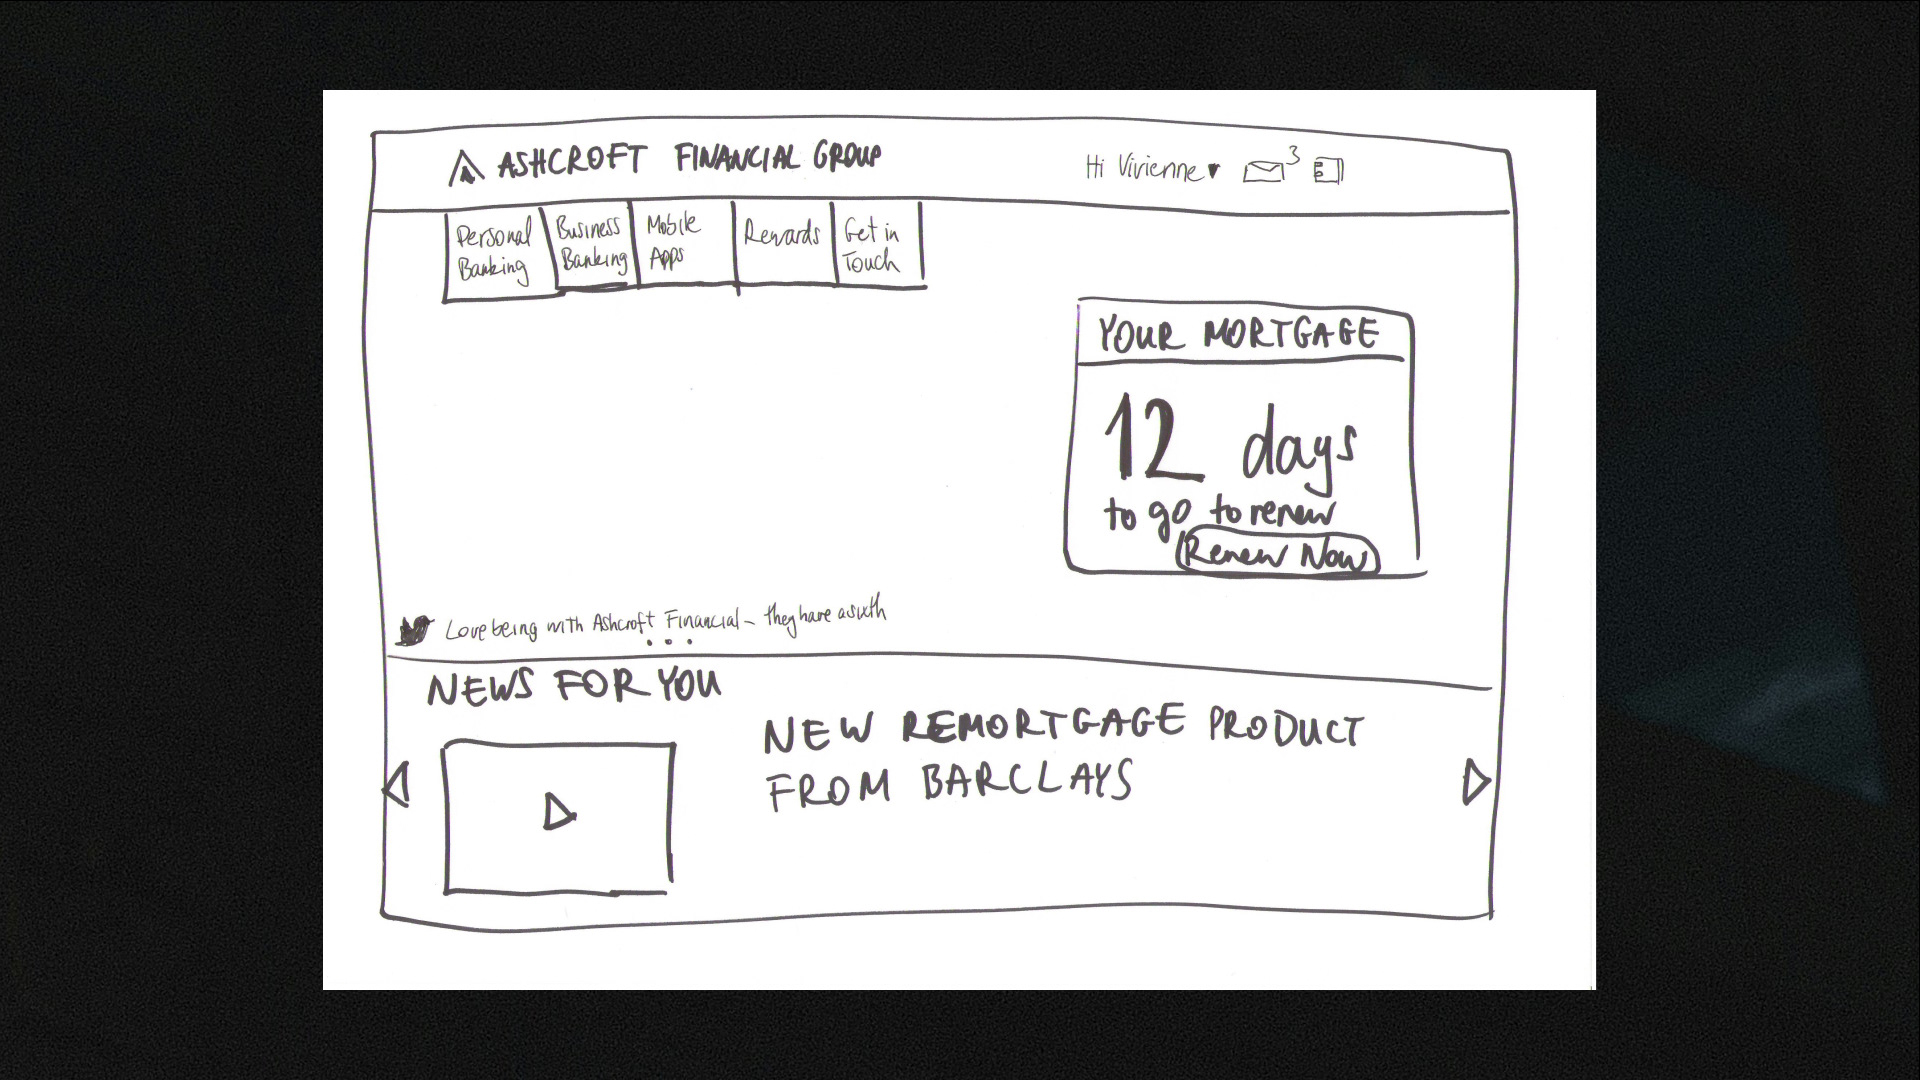 ASHCROFT FINANCIAL GROUP
Hi Vivienne
3
Personal
Banking
Business
Banking
Mobile
Apps
Rewards
Get in
Touch
YOUR MORTGAGE
12 days
to go to renew
Renew Now
Love being with Ashcroft Financial - they have
NEWS FOR YOU
NEW REMORTGAGE PRODUCT
FROM BARCLAYS